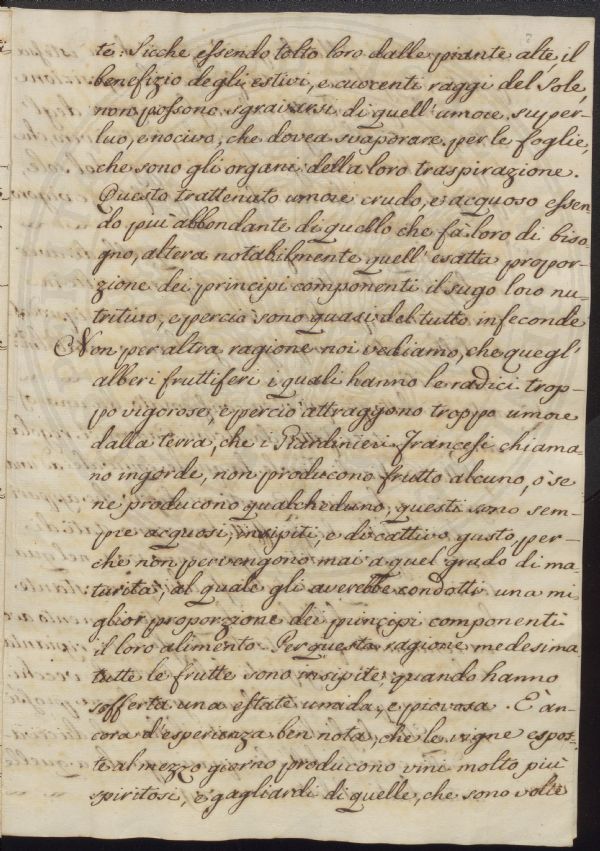 te. Sicche essendo tolto loro dalle piante alte il
benefizio degli estivi, e cuocenti raggi del Sole,
non possono sgravarsi di quell'umore super-
luo, e nocivo, che dovea svaporare per le foglie,
che sono gli organi della loro traspirazione.
Questo trattenuto umore crudo, e acquoso essen
do più abbondante di quello che fà loro di biso-
gno, altera notabilmente quell'esatta propor-
zione dei principi componenti il sugo loro nu-
tritivo, e perciò sono quasi del tutto infeconde
Non per altra ragione noi vediamo, che quegl'
alberi fruttiferi i quali hanno le radici trop-
po vigorose, e perciò attraggono troppo umore
dalla terra, che i Giardinieri Francesi chiama-
no ingorde, non producono frutto alcuno, ò se
ne producono qualcheduno, questi sono sem-
pre acquosi, insipiti e di cattivo gusto, per-
che non pervengono mai a quel grado di ma-
turità, al quale gli averebbe condotti una mi
glior proporzione dei principi componenti
il loro alimento. Per questa ragione medesima
tutte le frutte sono insipite, quando hanno
sofferta una estate umida, e piovosa. È an-
cora d'esperienza ben nota, che le vigne espos-
te al mezzo giorno producono vini molto più
spiritosi, e gagliardi di quelle, che sono volte